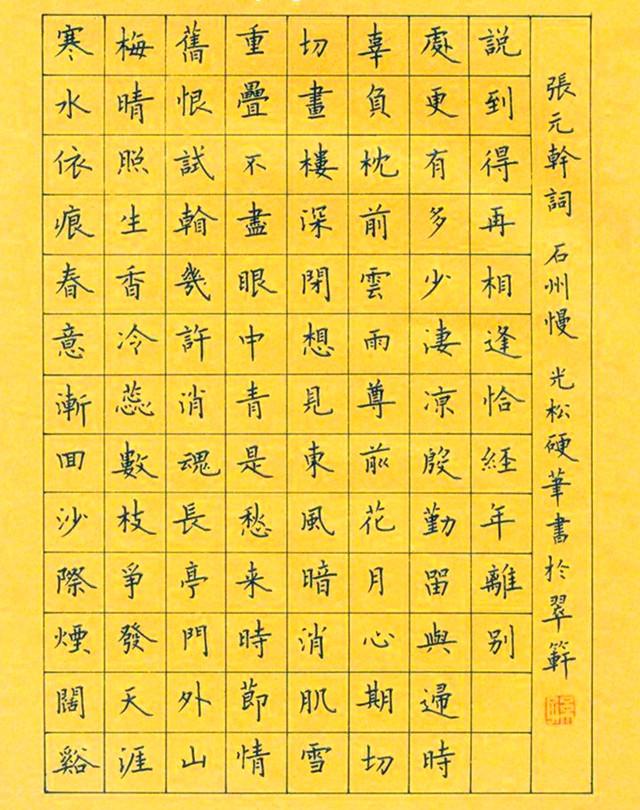 寒水依痕春意漸囬沙際煙闊谿
梅晴照生香冷蕊數枝爭發天涯
舊恨試看幾許消魂長亭門外山
重疊不盡眼中青是愁来時節情
切畫樓深閉想見東風暗消肌雪
辜負枕前雲雨尊前花月心期切
處更有多少淒凉殷勤留與歸時
説到得再相逢恰經年離别
張元幹詞 石州慢 光松硬筆書於翠簳